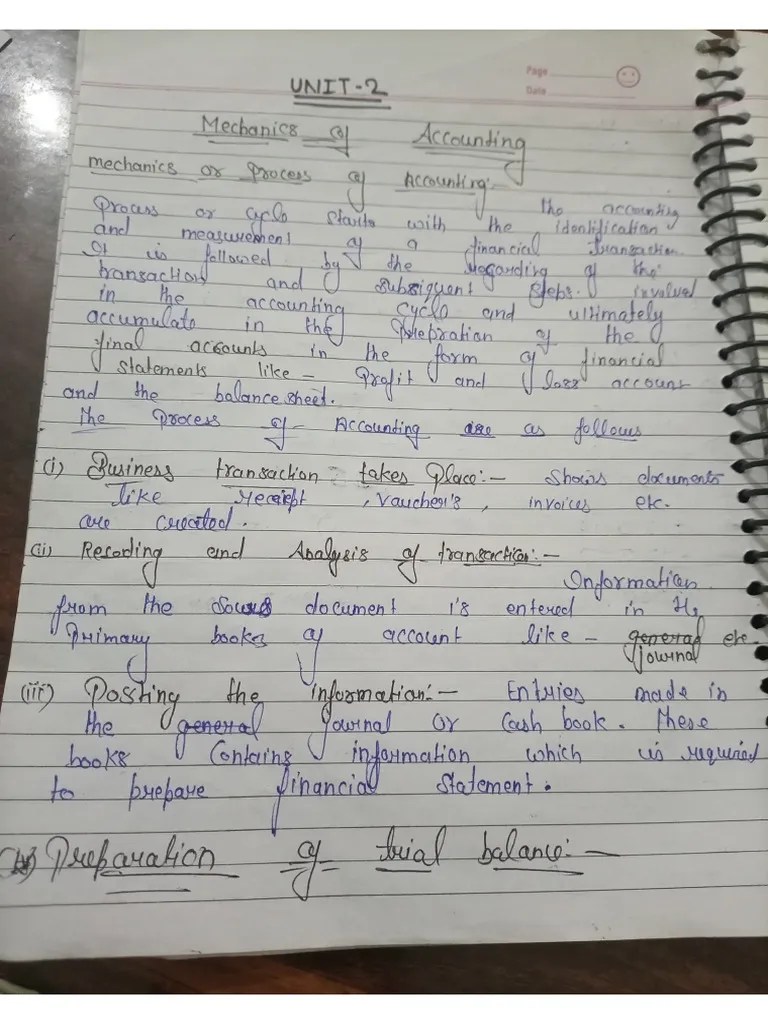 Page
Date
UNIT-2
Mechanics of Accounting
mechanics or Process of Accounting:-
The accounting
Process or cycle starts with the identification
and measurement of a financial transaction.
It is followed by the regarding of the
transaction and subsiquent steps involved
in the accounting cycle and ultimately
accumulate in the prepration of the
final accounts in the form of financial
statements like - Profit and loss account
and the balance sheet.
The Process of Accounting are as follows
(i) Business transaction takes Place:- Shows documents
like receipt, Vaucher's, invoices etc.
are created.
(ii) Recoding and Analysis of transaction:-
Information
from the document is entered in the
Primary books of account like - general etc.
journal
(iii) Posting the information:- Entries made in
the general journal or Cash book. These
books Contains information which is required
to prepare financial statement.
Preparation of trial balance:-